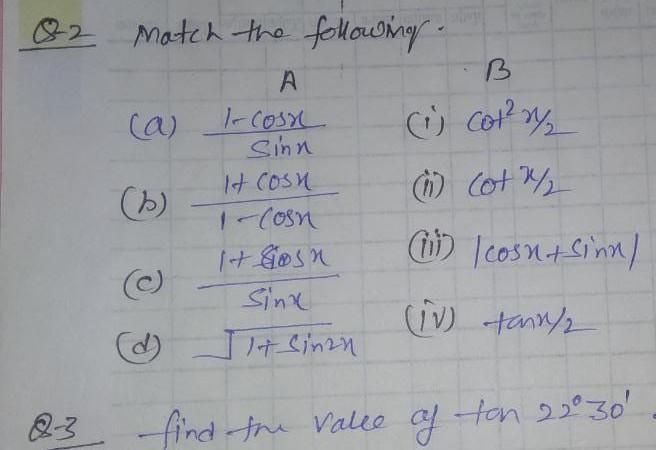 Q-2 Match the following.
A B
(a) (1-cosx)/(sinx) (i) cot² x/2
(b) (1+cosx)/(1-cosx) (ii) cot x/2
(c) (1+cosx)/(sinx) (iii) |cosx+sinx|
(d) √(1+sin2x) (iv) tanx/2
Q-3 find the value of tan 22°30'.